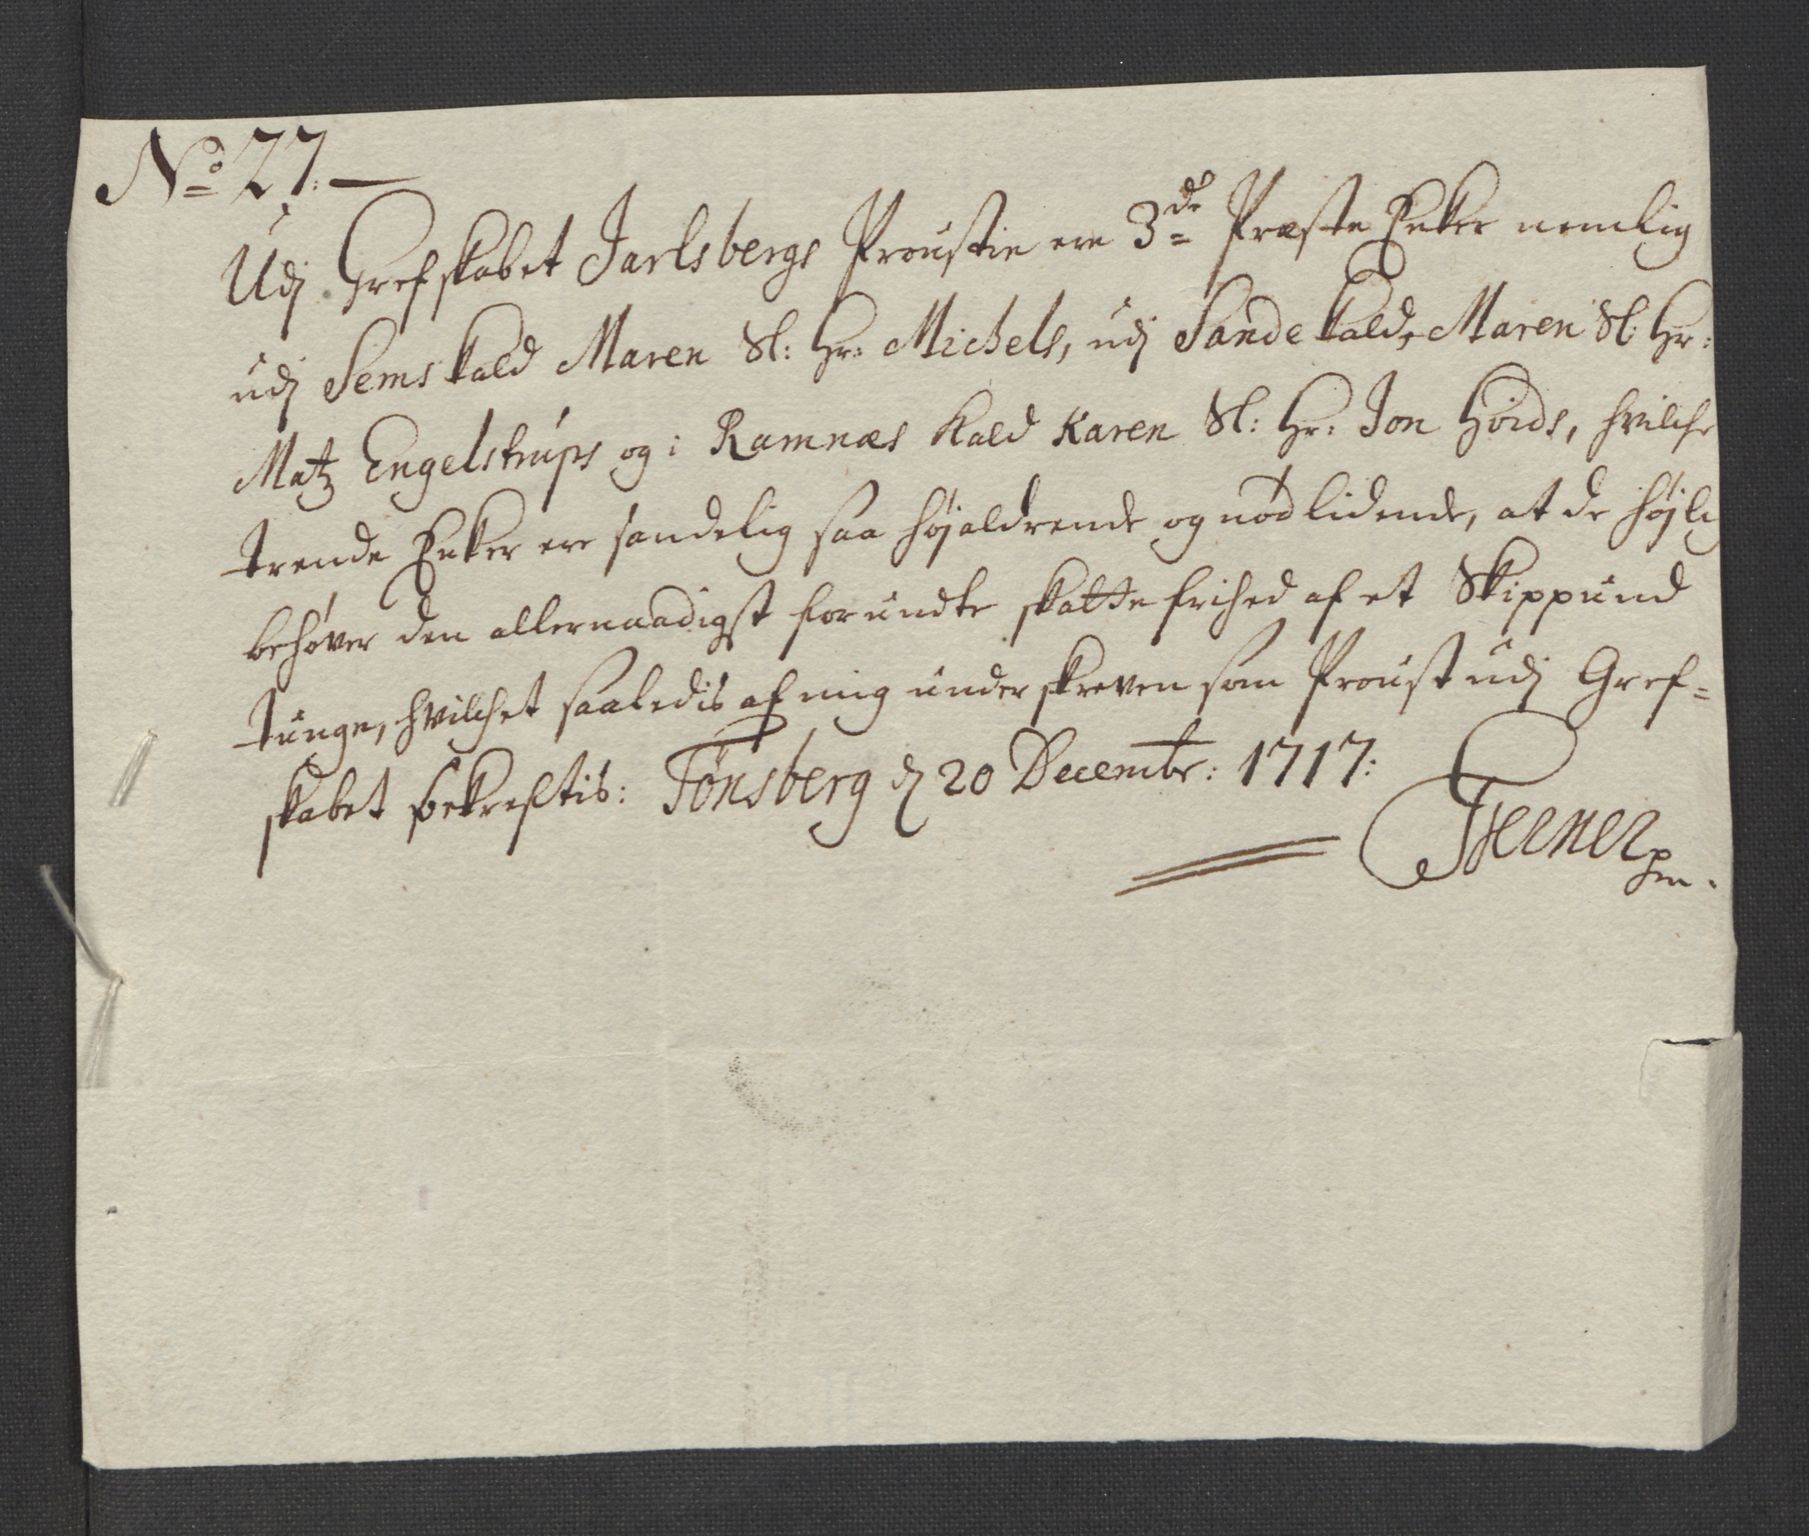 No 27. —
Udj Grefskabet Jarlsbergs Proustie ere 3de Præste Enker nemlig
udj Sems kald Maren Sl: Hr: Michels, udj Sande kald, Maren Sl: Hr:
Matz Engelstrups og i Ramnæs Kald Karen Sl: Hr: Jon Höids, hvilche
trende Enker ere sandelig saa højaldrende og nødlidende, at de højlig
behøver den allernaadigst forundte skattefrihed af et Skippund
tunge, hvilchet saaledis af mig underskreven som Proust udj Gref-
skabet bekreftis: Tønsberg d 20 Decembr: 1717: